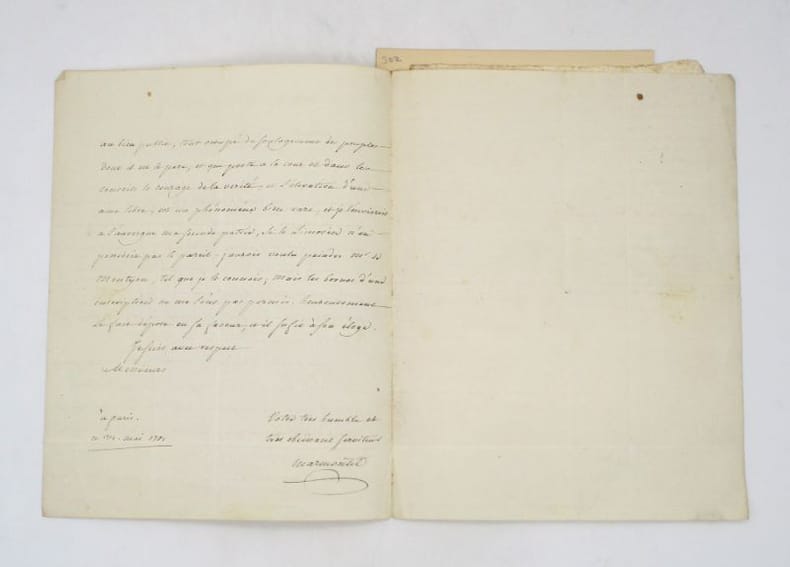 302
au bien public, tout occupé du soulagement des peuples
dont il est le pere, et qui porte a la cour et dans les
conseils le courage de la verité, et l'élévation d'une
ame libre, est un phénomene bien rare, et je l'envierois
a l'auvergne ma seconde patrie, si le Limosin n'en
possédoit pas le pareil. j'aurois voulu peindre Mr. de
Montyon, tel que je le connois; mais les bornes d'une
inscription ne me l'ont pas permis. heureusement
le fait dépose en sa faveur, et il suffit à son éloge.
Je suis avec respect
Messieurs
à paris.
ce mai
Votre très humble et
très obéissant serviteur
Marmontel